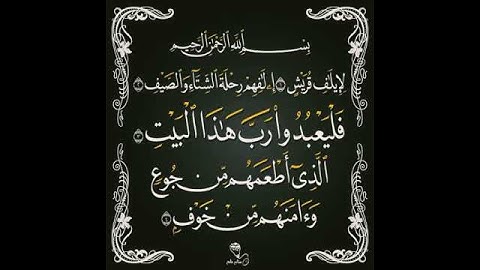 بِسْمِ ٱللَّهِ ٱلرَّحْمَٰنِ ٱلرَّحِيمِ
لِإِيلَٰفِ قُرَيْشٍ ١ إِۦلَٰفِهِمْ رِحْلَةَ ٱلشِّتَآءِ وَٱلصَّيْفِ ٢
فَلْيَعْبُدُوا۟ رَبَّ هَٰذَا ٱلْبَيْتِ ٣
ٱلَّذِىٓ أَطْعَمَهُم مِّن جُوعٍ
وَءَامَنَهُم مِّنْ خَوْفٍۭ ٤